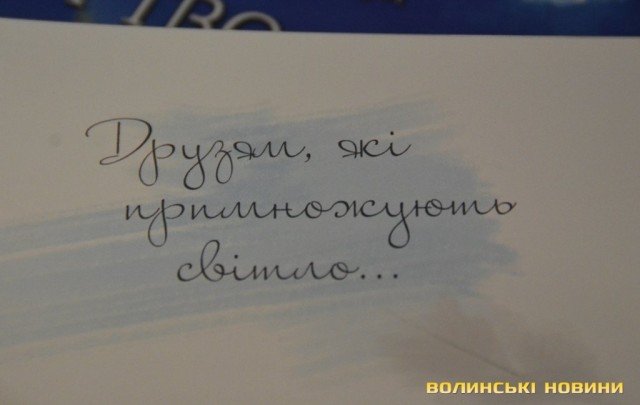 ТВО
Друзям, які
примножують
світло...
ВОЛИНСЬКІ НОВИНИ